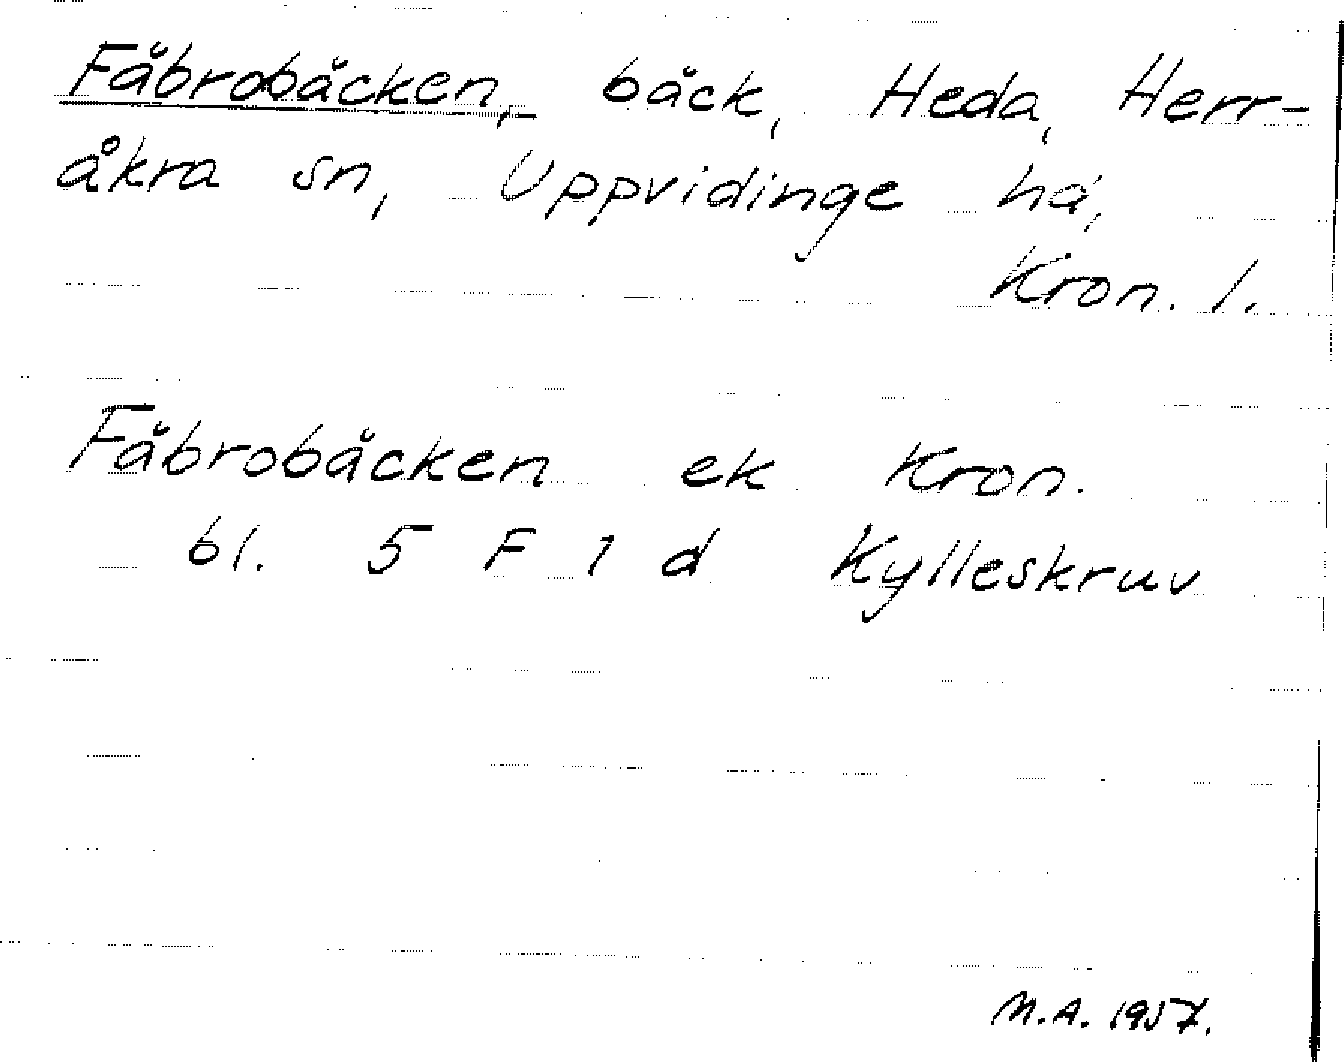 Fäbrobäcken, bäck, Heda, Herr-
åkra sn, Uppvidinge hd,
Kron. l.
Fäbrobäcken ek Kron.
bl. 5 F 1 d Kylleskruv
M.A. 1957.